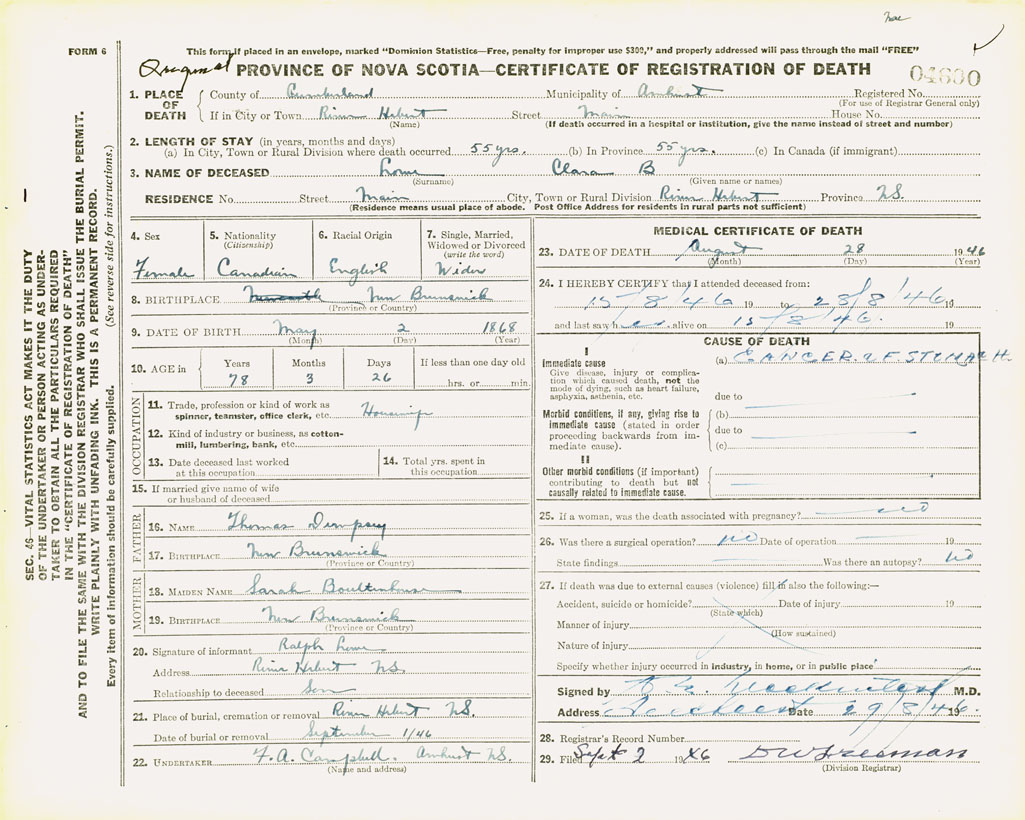 FORM 6
This form if placed in an envelope, marked "Dominion Statistics—Free, penalty for improper use $300," and properly addressed will pass through the mail "FREE"
PROVINCE OF NOVA SCOTIA—CERTIFICATE OF REGISTRATION OF DEATH
1. PLACE OF DEATH
County of Cumberland Municipality of Amherst Registered No.
(For use of Registrar General only)
If in City or Town River Hebert Street Main House No.
(Name) (If death occurred in a hospital or institution, give the name instead of street and number)
2. LENGTH OF STAY (in years, months and days)
(a) In City, Town or Rural Division where death occurred 55 yrs. (b) In Province 55 yrs. (c) In Canada (if immigrant)
3. NAME OF DECEASED Lowe Clara B
(Surname) (Given name or names)
RESIDENCE No. Street Main City, Town or Rural Division River Hebert Province N.S.
(Residence means usual place of abode. Post Office Address for residents in rural parts not sufficient)
4. Sex
Female
5. Nationality
(Citizenship)
Canadian
6. Racial Origin
English
7. Single, Married,
Widowed or Divorced
(write the word)
Widow
8. BIRTHPLACE New Brunswick
(Province or Country)
9. DATE OF BIRTH May 2 1868
(Month) (Day) (Year)
10. AGE in
Years Months Days If less than one day old
78 3 26 hrs. or min.
OCCUPATION
11. Trade, profession or kind of work as
spinner, teamster, office clerk, etc. Housewife
12. Kind of industry or business, as cotton-
mill, lumbering, bank, etc.
13. Date deceased last worked
at this occupation
14. Total yrs. spent in
this occupation
15. If married give name of wife
or husband of deceased
FATHER
16. NAME Thomas Dempsey
17. BIRTHPLACE New Brunswick
(Province or Country)
MOTHER
18. MAIDEN NAME Sarah Boultenhouse
19. BIRTHPLACE New Brunswick
(Province or Country)
20. Signature of informant Ralph Lowe
Address River Hebert N.S.
Relationship to deceased Son
21. Place of burial, cremation or removal River Hebert N.S.
Date of burial or removal September 1/46
22. UNDERTAKER F. A. Campbell. Amherst N.S.
(Name and address)
MEDICAL CERTIFICATE OF DEATH
23. DATE OF DEATH August 28 1946
(Month) (Day) (Year)
24. I HEREBY CERTIFY that I attended deceased from:
15/8/46 19 to 28/8/46 19
and last saw her alive on 15/8/46. 19
CAUSE OF DEATH
I
Immediate cause (a) CANCER OF STOMACH.
Give disease, injury or complica-
tion which caused death, not the
mode of dying, such as heart failure,
asphyxia, asthenia, etc.
due to
Morbid conditions, if any, giving rise to
immediate cause (stated in order
proceeding backwards from im-
mediate cause).
(b)
due to
(c)
II
Other morbid conditions (if important)
contributing to death but not
causally related to immediate cause.
25. If a woman, was the death associated with pregnancy? no
26. Was there a surgical operation? no Date of operation 19
State findings Was there an autopsy? no
27. If death was due to external causes (violence) fill in also the following:—
Accident, suicide or homicide? Date of injury 19
(State which)
Manner of injury
(How sustained)
Nature of injury
Specify whether injury occurred in industry, in home, or in public place
Signed by M.D.
Address Date 29/8/46.
28. Registrar's Record Number
29. Filed Sept 2 1946 D W Freeman
(Division Registrar)
SEC. 46—VITAL STATISTICS ACT MAKES IT THE DUTY
OF THE UNDERTAKER OR PERSON ACTING AS UNDER-
TAKER TO OBTAIN ALL THE PARTICULARS REQUIRED
IN THE "CERTIFICATE OF REGISTRATION OF DEATH"
AND TO FILE THE SAME WITH THE DIVISION REGISTRAR WHO SHALL ISSUE THE BURIAL PERMIT.
WRITE PLAINLY WITH UNFADING INK. THIS IS A PERMANENT RECORD.
Every item of information should be carefully supplied. (See reverse side for instructions.)